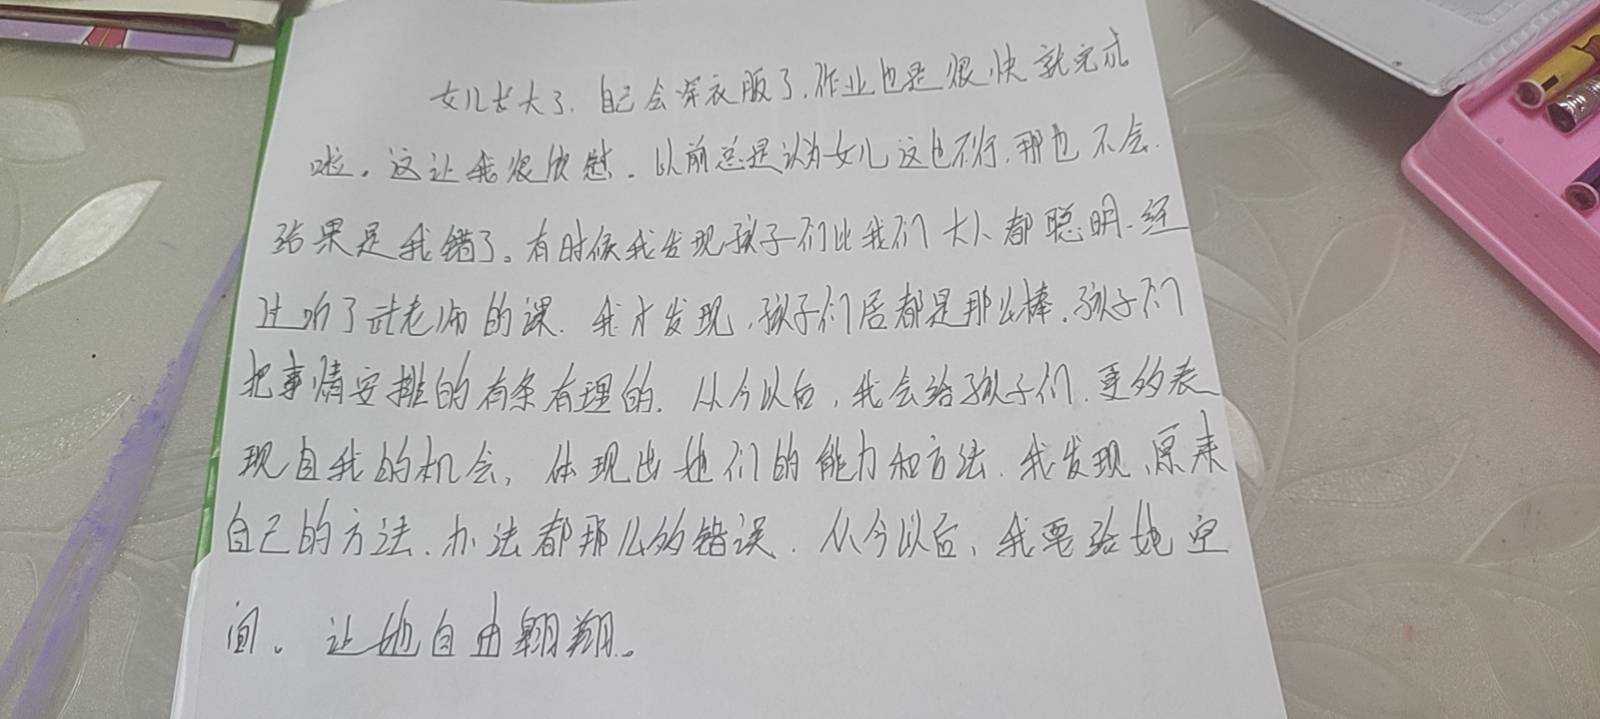 女儿长大了.自己会穿衣服了.作业也是很快就完成
啦。这让我很欣慰。以前总是认为女儿这也不行.那也不会.
结果是我错了。有时候我发现孩子们比我们大人都聪明.经
过听了武老师的课.我才发现,孩子们居都是那么棒.孩子们
把事情安排的有条有理的.从今以后,我会给孩子们.更多表
现自我的机会,体现出她们的能力和方法.我发现,原来
自己的方法.办法都那么的错误.从今以后,我要给她空
间。让她自由翱翔。